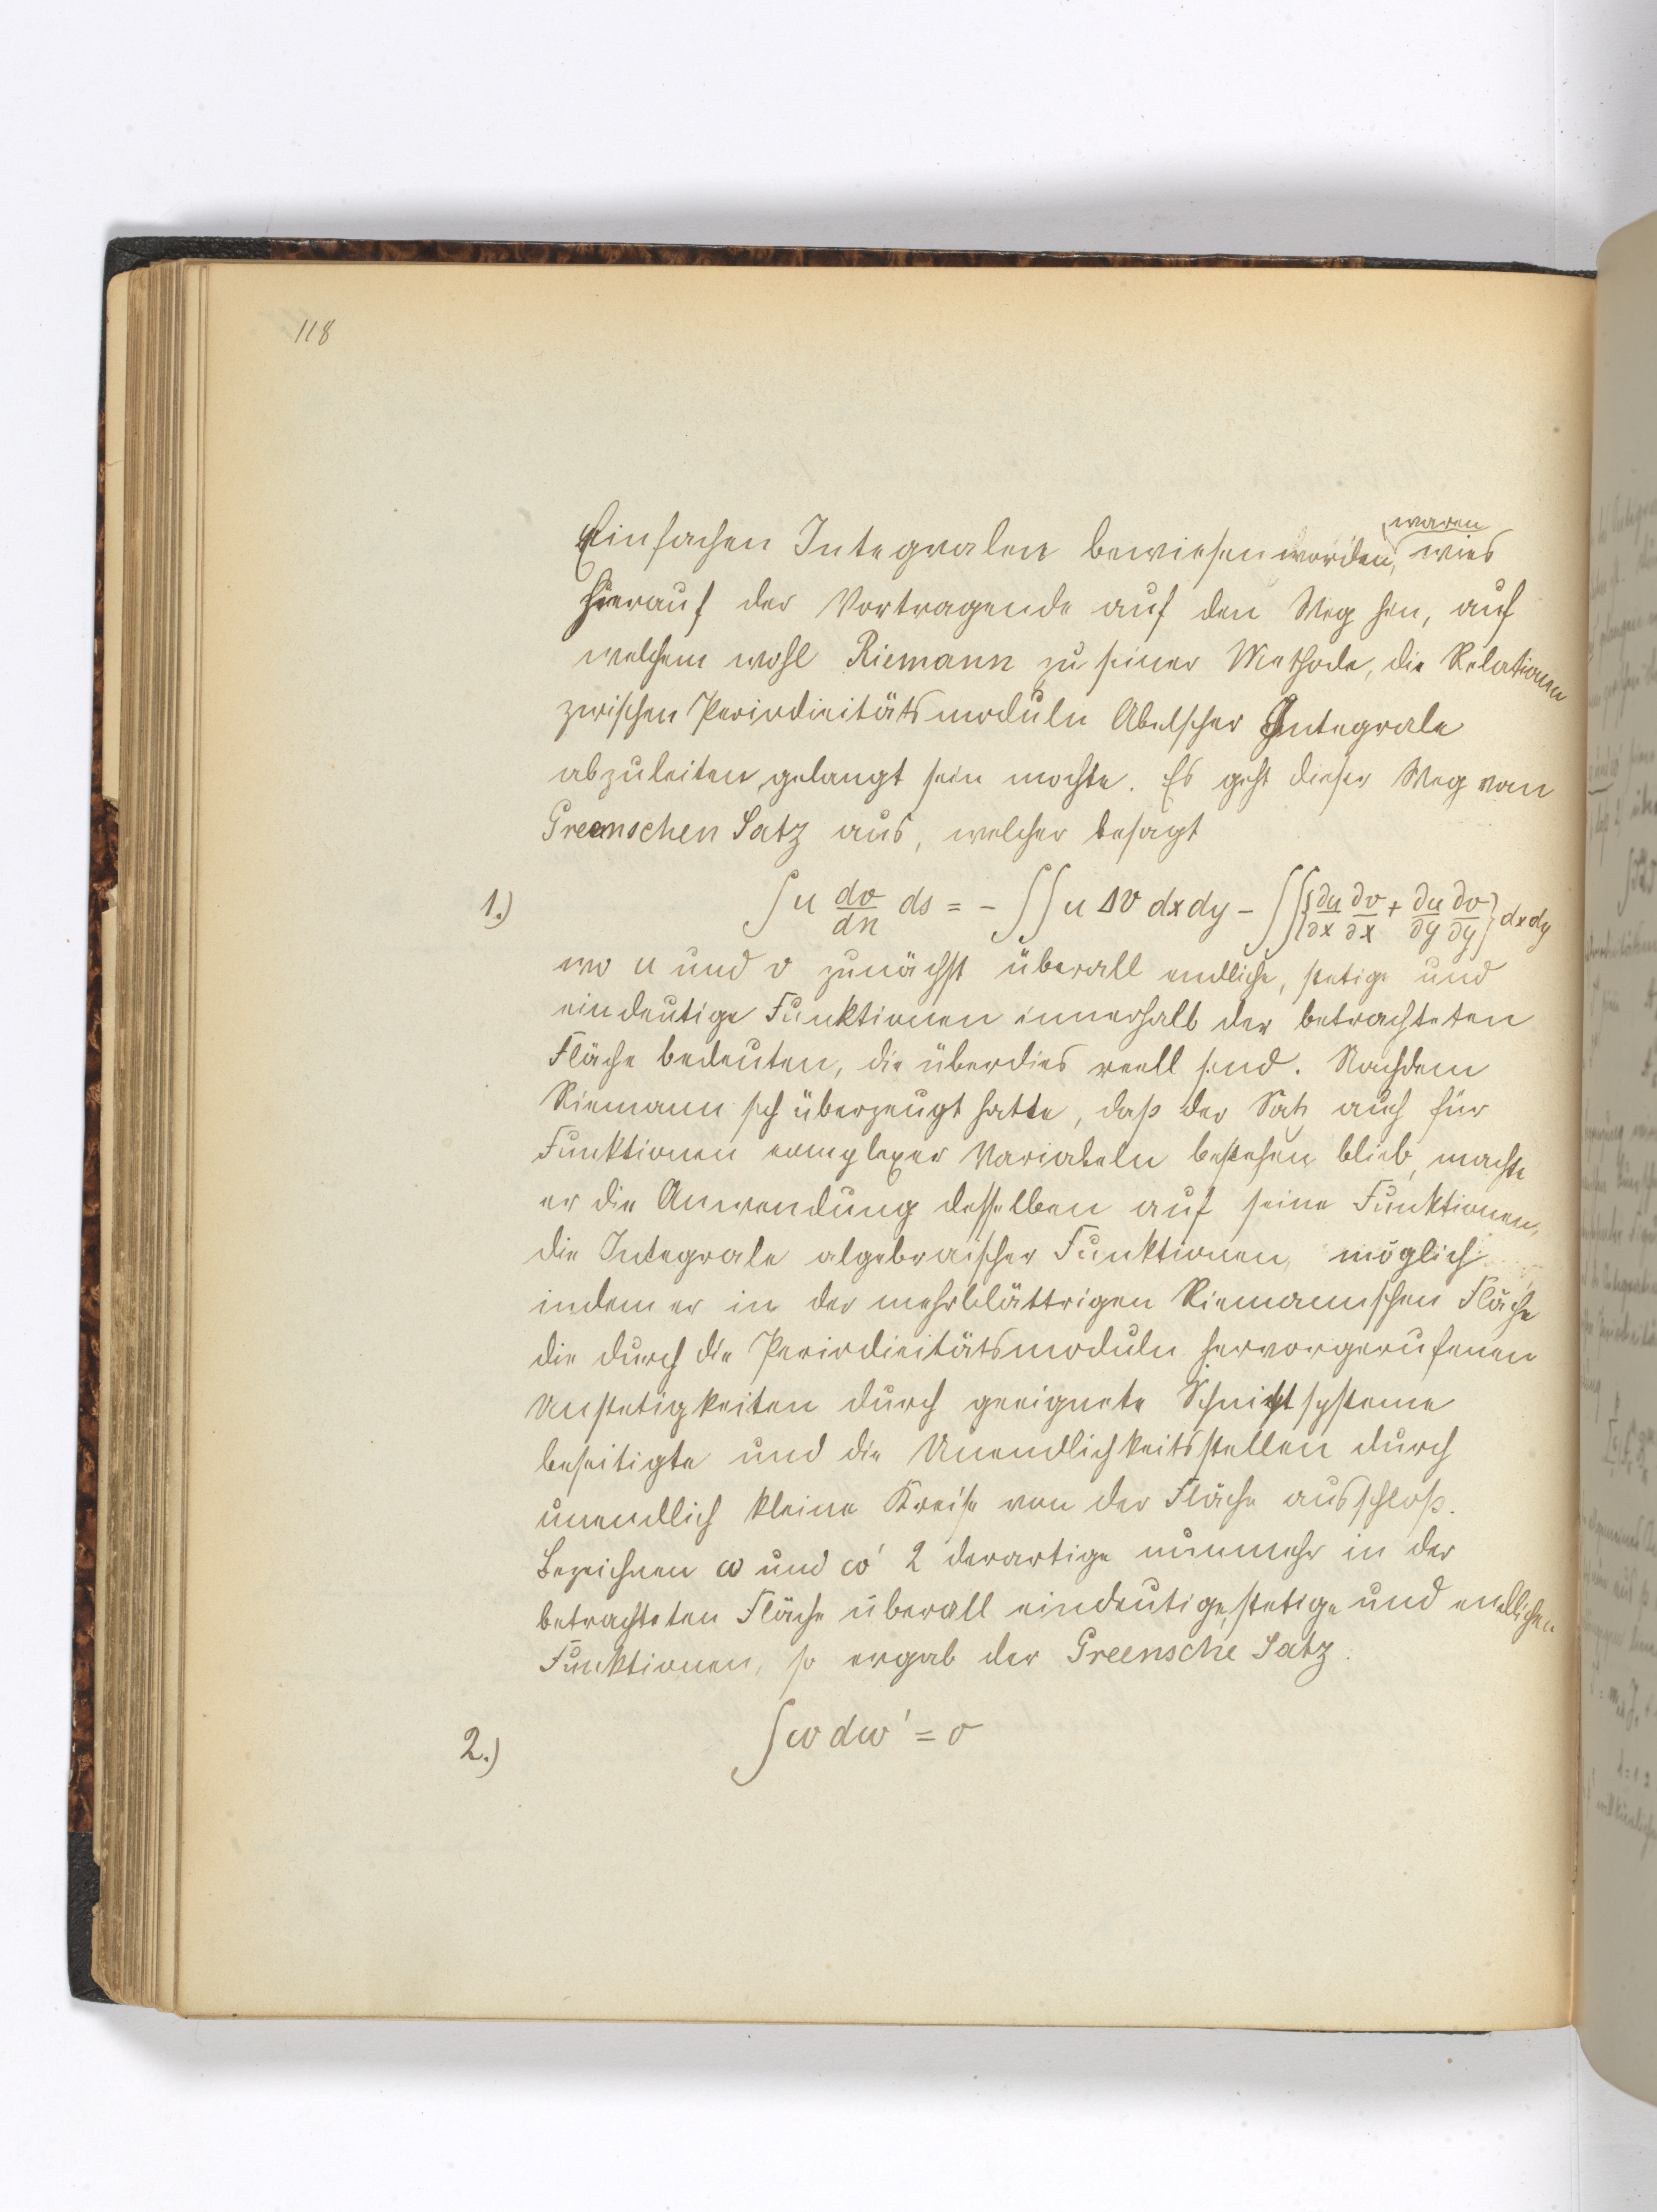 118
waren
Einfachen Integralen bewiesen worden, wies
hierauf der Vortragende auf den Weg hin, auf
welchem wohl Riemann zu seiner Methode, die Relationen
zwischen Periodicitätsmoduln Abelscher Integrale
abzuleiten, gelangt sein mochte. Es geht dieser Weg von
Greenschen Satz aus, welcher besagt
1.) ∫u dv/dn ds = - ∫∫ u Δv dxdy - ∫∫{∂u/∂x ∂v/∂x + ∂u/∂y ∂v/∂y} dxdy
wo u und v zunächst überall endliche, stetige und
eindeutige Funktionen innerhalb der betrachteten
Fläche bedeuten, die überdies reell sind. Nachdem
Riemann sich überzeugt hatte, daß der Satz auch für
Funktionen complexer Variabeln bestehen blieb, machte
er die Anwendung desselben auf seine Funktionen,
die Integrale algebraischer Funktionen, möglich
indem er in der mehrblättrigen Riemannschen Fläche
die durch die Periodicitätsmoduln hervorgerufenen
Unstetigkeiten durch geeignete Schnittsysteme
beseitigte und die Unendlichkeitsstellen durch
unendlich kleine Kreise von der Fläche ausschloß.
Bezeichnen ω und ω' 2 derartige nunmehr in der
betrachteten Fläche überall eindeutige, stetige und endlichen
Funktionen, so ergab der Greensche Satz.
2.) ∫ω dω' = 0